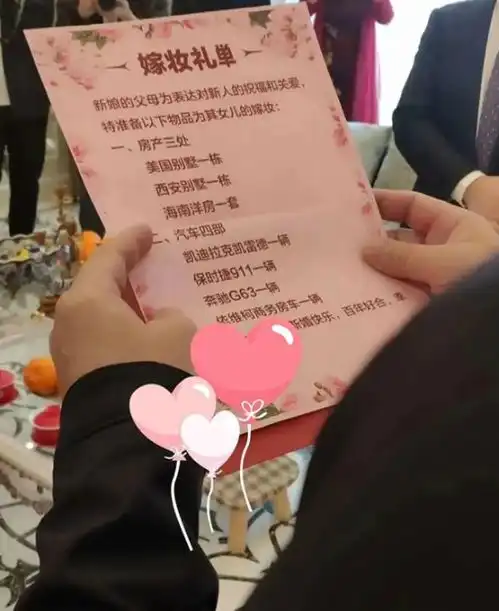 嫁妆礼单
新娘的父母为表达对新人的祝福和关爱，
特准备以下物品为其女儿的嫁妆：
一、房产三处
美国别墅一栋
西安别墅一栋
海南洋房一套
二、汽车四部
凯迪拉克凯雷德一辆
保时捷911一辆
奔驰G63一辆
依维柯商务房车一辆
新婚快乐，百年好合，幸